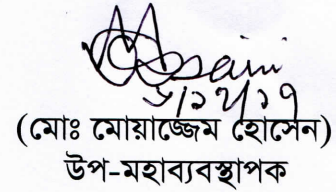 ৮/১২/১৭
(মোঃ মোয়াজ্জেম হোসেন)
উপ-মহাব্যবস্থাপক